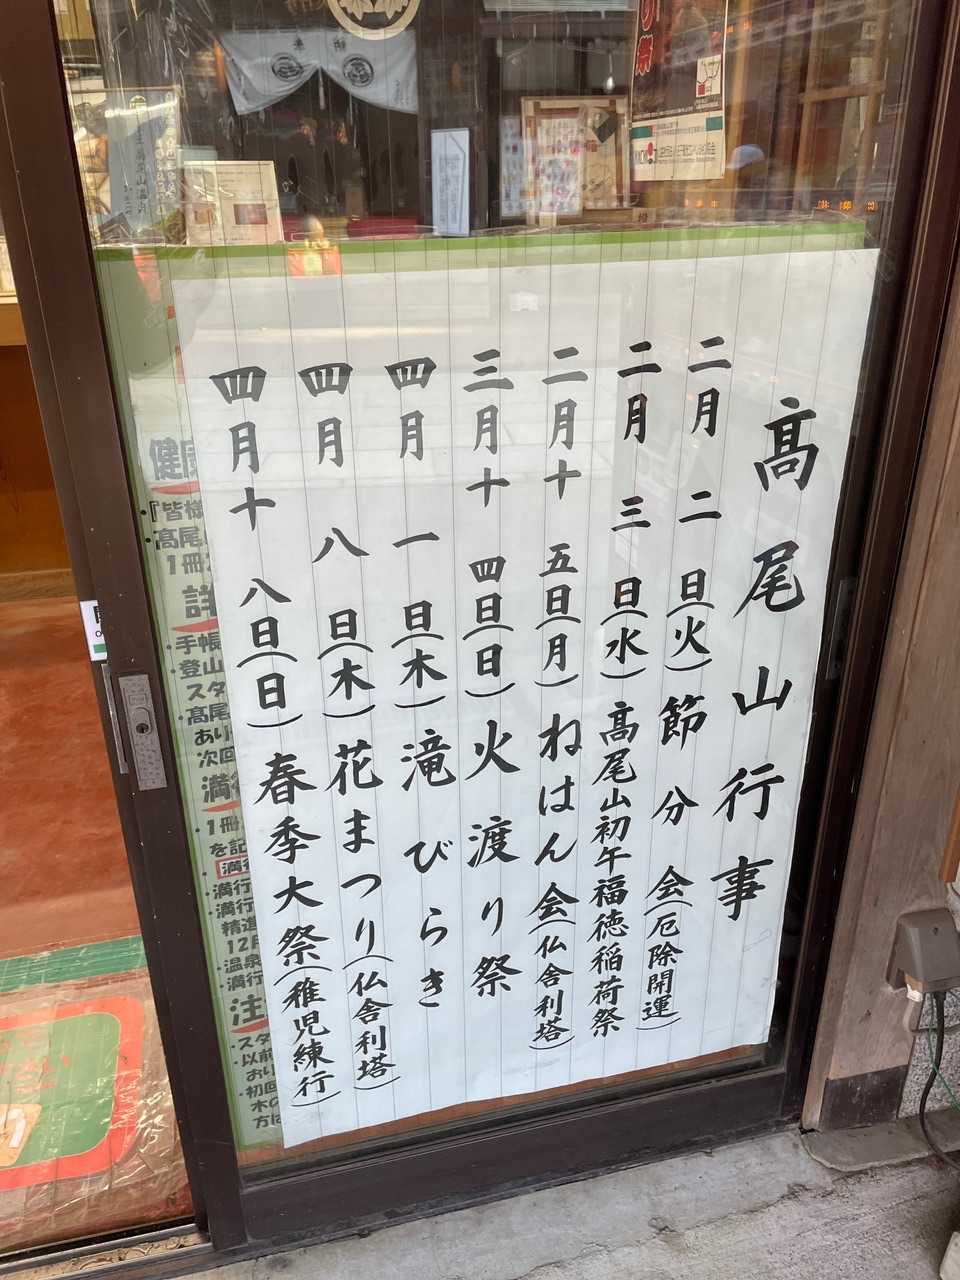 髙尾山行事
二月二日(火)節分会(厄除開運)
二月三日(水)髙尾山初午福徳稲荷祭
二月十五日(月)ねはん会(仏舎利塔)
三月十四日(日)火渡り祭
四月一日(木)滝びらき
四月八日(木)花まつり(仏舎利塔)
四月十八日(日)春季大祭(稚児練行)
健康
『皆様
・髙尾
1冊
詳
・手帳
・登山
スタ
・髙尾
あり
次回
満行
・1冊
を記
満行
満行
・満行
精進
12月
・温泉
・満行
注
・スタ
・以前
おり
・初回
木の
方に